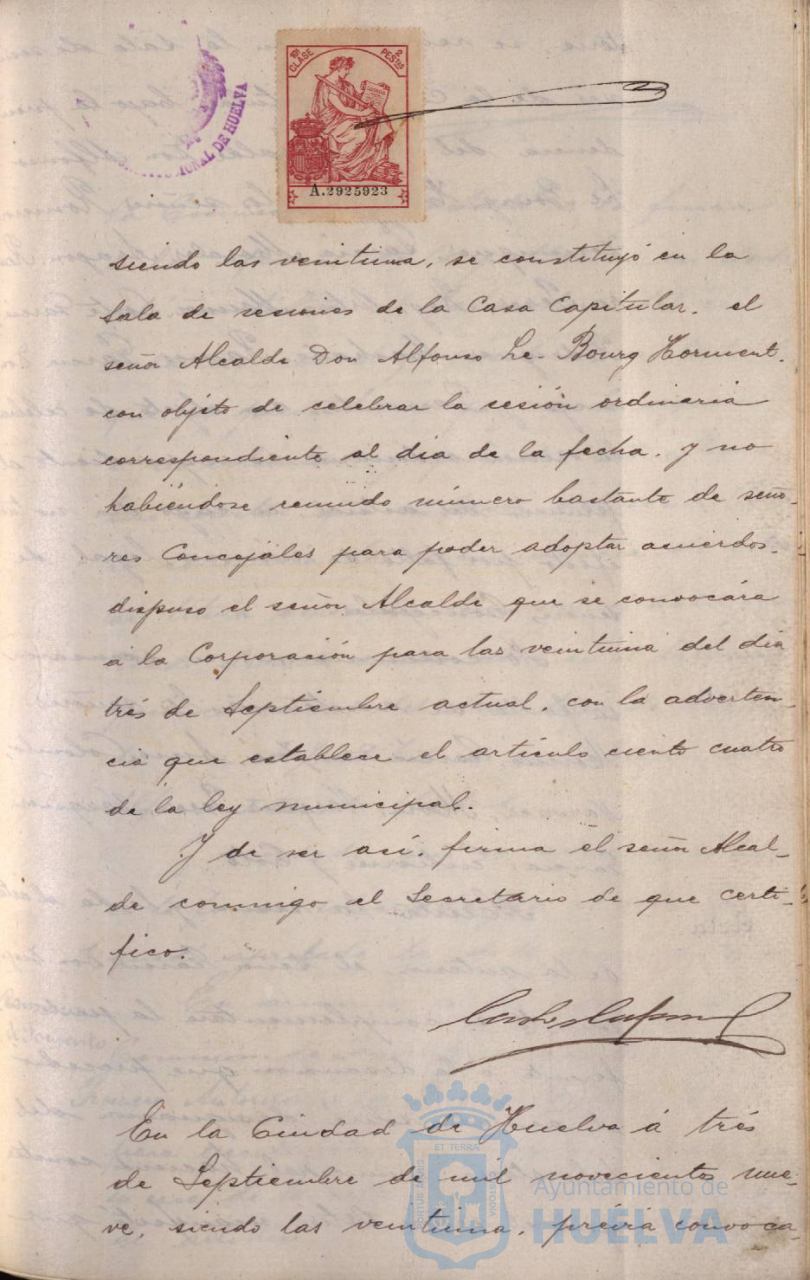 10ª CLASE 2 PESTAS
A.2925923
CIONAL DE HUELVA
siendo las veintiuna, se constituyó en la
Sala de sesiones de la Casa Capitular, el
señor Alcalde Don Alfonso Le-Bourg Horment,
con objeto de celebrar la sesión ordinaria
correspondiente al dia de la fecha, y no
habiéndose reunido número bastante de seño-
res Concejales para poder adoptar acuerdos,
dispuso el señor Alcalde que se convocára
á la Corporación para las veintiuna del dia
trés de Septiembre actual, con la adverten-
cia que establece el artículo ciento cuatro
de la ley municipal.
Y de ser así, firma el señor Alcal-
de conmigo el Secretario de que certi-
fico.
En la Ciudad de Huelva á trés
de Septiembre de mil novecientos nue-
ve, siendo las veintiuna, prévia convoca-
ET TERRÆ
PORTUS MARIS
CUSTODIA
Ayuntamiento de
HUELVA